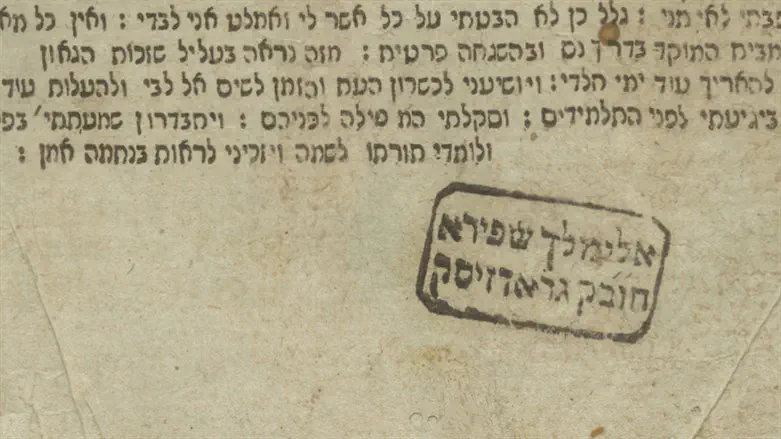 לאי מני : גלל כן לא הבטתי על כל אשר לי ואמלט אני לבדי : ואין כל
מבית המוקד בדרך נס ובהשגחה פרטית : מזה נראה בעליל שזכות הגאון
להאריך עוד ימי חלדי : ויושיעני לכשרון העת והזמן לשים אל לבי ולהעלות עוד
ביגיעתי לפני התלמידים : וסקלתי המסילה לבניהם : ויתבדרון שמעתתי'
ולומדי תורתו לשמה ויזכיני לראות בנחמה אמן :
אלימלך שפירא
חובק גראדזיסק